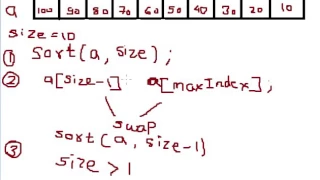 a 100 90 80 70 60 50 40 30 20 10
size=10
① sort(a, size);
② a[size-1] a[maxIndex];
swap
③ sort(a, size-1)
size > 1